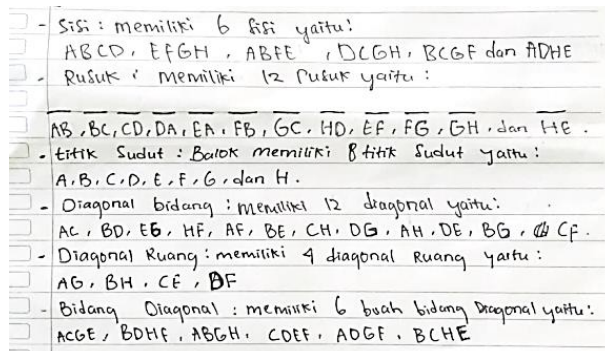 - Sisi : memiliki 6 sisi yaitu :
ABCD, EFGH, ABFE, DCGH, BCGF dan ADHE
- Rusuk : memiliki 12 rusuk yaitu :
AB, BC, CD, DA, EA, FB, GC, HD, EF, FG, GH, dan HE.
- titik Sudut : Balok memiliki 8 titik sudut yaitu :
A, B, C, D, E, F, G, dan H.
- Diagonal bidang : memiliki 12 diagonal yaitu :
AC, BD, EG, HF, AF, BE, CH, DG, AH, DE, BG, CF.
- Diagonal Ruang : memiliki 4 diagonal Ruang yaitu :
AG, BH, CE, DF
- Bidang Diagonal : memiliki 6 buah bidang Diagonal yaitu :
ACGE, BDHF, ABGH, CDEF, ADGF, BCHE